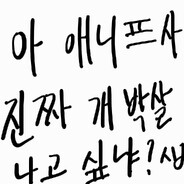 아 애니프사
진짜 개 박살
나고 싶냐? 씹